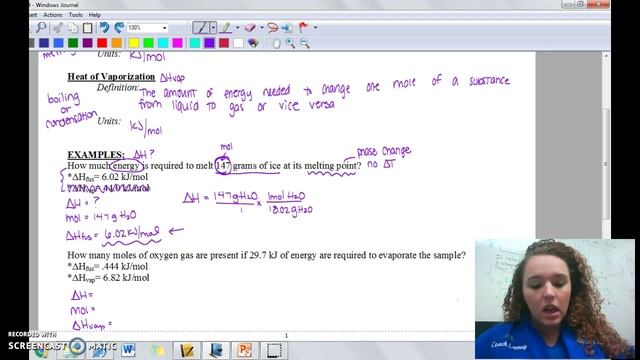 - Windows Journal
Insert Actions Tools Help
130%
melting
Units: kJ/mol
Heat of Vaporization ΔHvap
Definition: The amount of energy needed to change one mole of a substance
from liquid to gas or vice versa
boiling
or
condensation
Units: kJ/mol
mol
phase change
EXAMPLES: ΔH ?
no ΔT
How much energy is required to melt 147 grams of ice at its melting point?
*ΔHfus= 6.02 kJ/mol
ΔH = ?
mol = 147 g H2O
ΔHfus = 6.02 kJ/mol ←
ΔH = 147 g H2O / 1 × 1 mol H2O / 18.02 g H2O
How many moles of oxygen gas are present if 29.7 kJ of energy are required to evaporate the sample?
*ΔHfus= .444 kJ/mol
*ΔHvap= 6.82 kJ/mol
ΔH =
mol =
ΔHvap =
1
RECORDED WITH
SCREENCAST MATIC